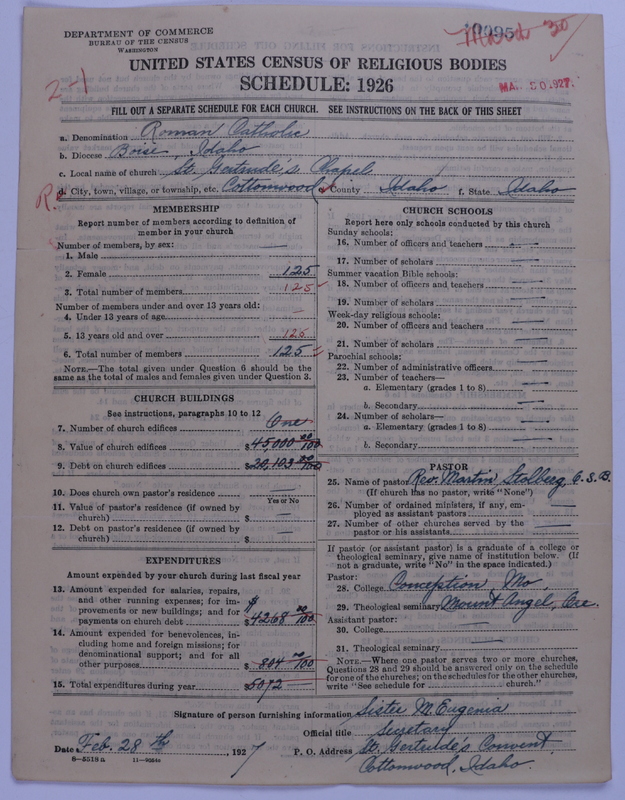 DEPARTMENT OF COMMERCE
BUREAU OF THE CENSUS
WASHINGTON
UNITED STATES CENSUS OF RELIGIOUS BODIES
SCHEDULE: 1926
2-1
FILL OUT A SEPARATE SCHEDULE FOR EACH CHURCH. SEE INSTRUCTIONS ON THE BACK OF THIS SHEET
a. Denomination Roman Catholic
b. Diocese Boise, Idaho
c. Local name of church St. Gertrude's Chapel
d. City, town, village, or township, etc. Cottonwood e. County Idaho f. State Idaho
R.
MEMBERSHIP
Report number of members according to definition of member in your church
Number of members, by sex:
1. Male
2. Female 125
3. Total number of members 125
Number of members under and over 13 years old:
4. Under 13 years of age
5. 13 years old and over 125
6. Total number of members 125
NOTE.—The total given under Question 6 should be
same as the total of males and females given under Question 3.
CHURCH BUILDINGS
See instructions, paragraphs 10 to 12
7. Number of church edifices One
8. Value of church edifices $45,000 00/100
9. Debt on church edifices $20,103 20/100
10. Does church own pastor's residence
Yes or No
11. Value of pastor's residence (if owned by
church) $
12. Debt on pastor's residence (if owned by
church) $
EXPENDITURES
Amount expended by your church during last fiscal year
13. Amount expended for salaries, repairs,
and other running expenses; for im-
provements or new buildings; and for
payments on church debt $4268 20/100
14. Amount expended for benevolences, in-
cluding home and foreign missions; for
denominational support; and for all
other purposes $804 /100
15. Total expenditures during year $5072
CHURCH SCHOOLS
Report here only schools conducted by this church
Sunday schools:
16. Number of officers and teachers
17. Number of scholars
Summer vacation Bible schools:
18. Number of officers and teachers
19. Number of scholars
Week-day religious schools:
20. Number of officers and teachers
21. Number of scholars
Parochial schools:
22. Number of administrative officers
23. Number of teachers—
a. Elementary (grades 1 to 8)
b. Secondary
24. Number of scholars—
a. Elementary (grades 1 to 8)
b. Secondary
PASTOR
25. Name of pastor Rev. Martin Stolberg O.S.B.
(If church has no pastor, write "None")
26. Number of ordained ministers, if any, em-
ployed as assistant pastors
27. Number of other churches served by the
pastor or his assistants
If pastor (or assistant pastor) is a graduate of a college or
theological seminary, give name of institution below. (If
not a graduate, write "No" in the space indicated.)
Pastor:
28. College Conception Mo,
29. Theological seminary Mount Angel, Ore.
Assistant pastor:
30. College
31. Theological seminary
NOTE.—Where one pastor serves two or more churches,
Questions 28 and 29 should be answered only on the schedule
for one of the churches; on the schedules for the other churches,
write "See schedule for church."
Signature of person furnishing information Sister M. Eugenia
Official title Secretary
Date Feb. 28th, 1927 P. O. Address St. Gertrude's Convent,
Cottonwood, Idaho.
8-5518a 11-9058